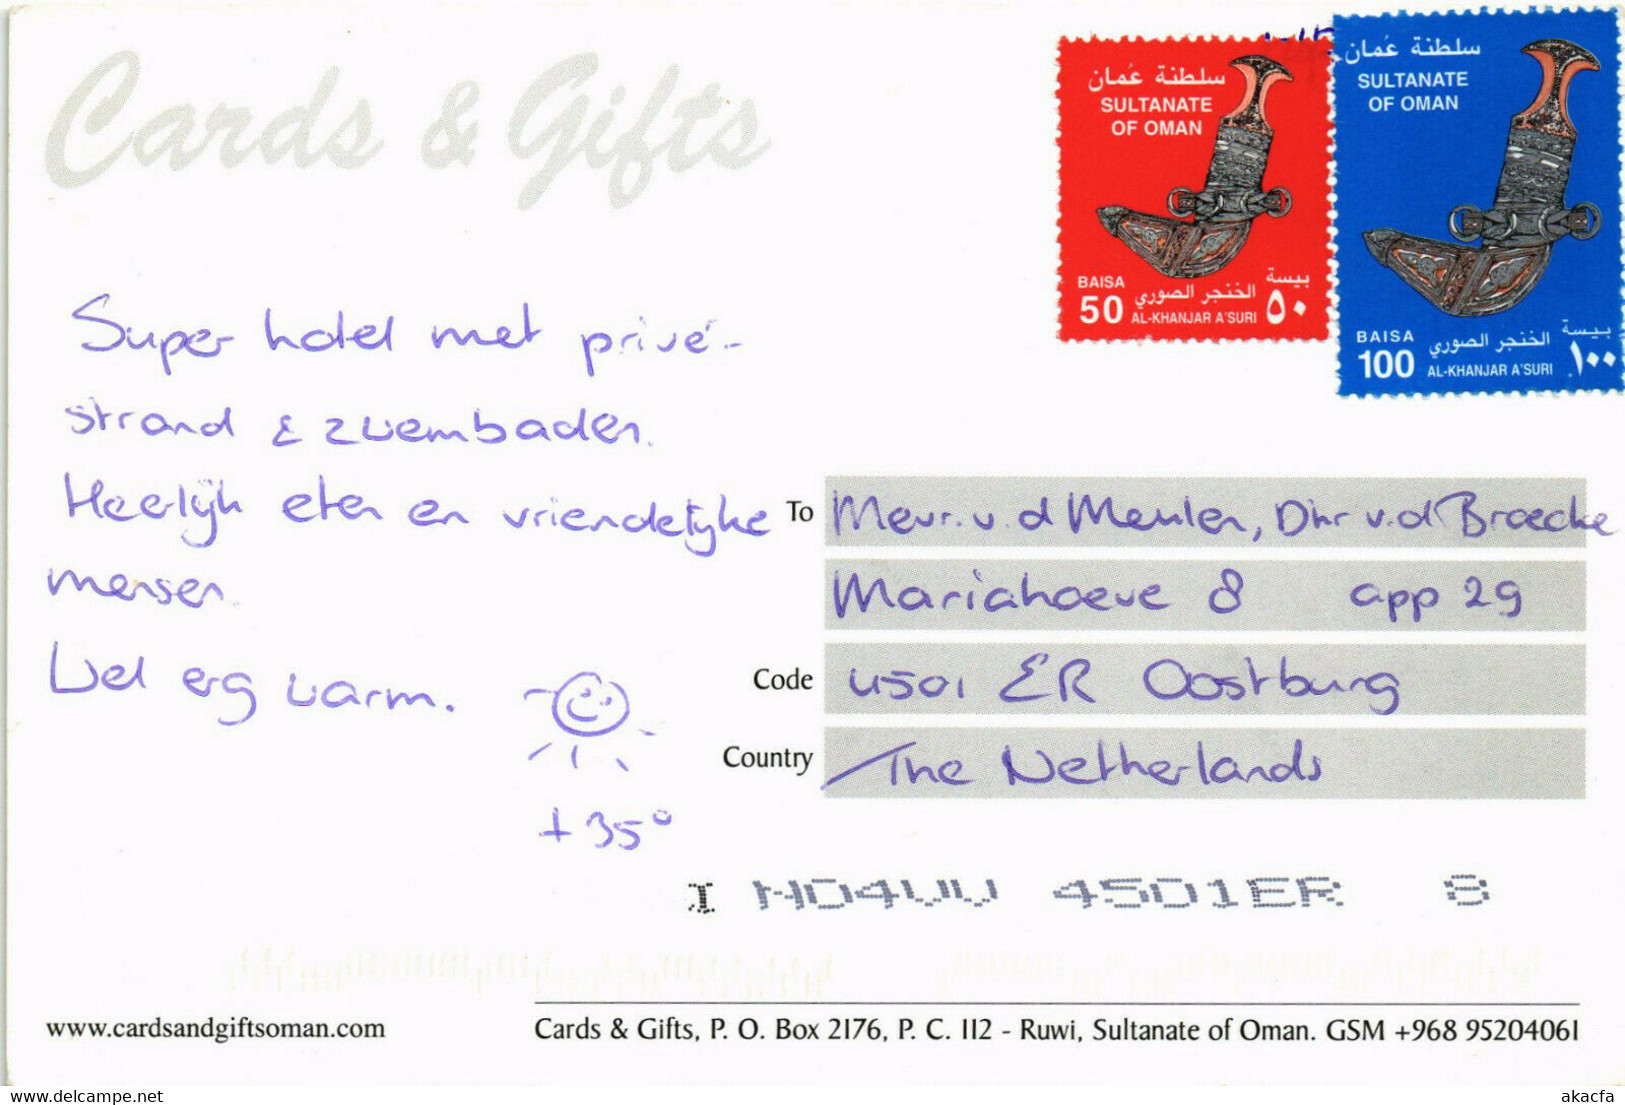 Cards & Gifts
سلطنة عُمان
SULTANATE
OF OMAN
BAISA
50
بيسة
٥٠
الخنجر الصوري
AL-KHANJAR A'SURI
سلطنة عُمان
SULTANATE
OF OMAN
BAISA
100
بيسة
١٠٠
الخنجر الصوري
AL-KHANJAR A'SURI
Super hotel met privé-
strand & zwembaden.
Heerlijk eten en vriendelijke
mensen.
Wel erg warm.
+ 35°
To Mevr. v. d Meulen, Dhr v.d Broecke
Mariahoeve 8 app 29
Code 4501 ER Oostburg
Country The Netherlands
I ND4VV 4501ER 8
www.cardsandgiftsoman.com
Cards & Gifts, P. O. Box 2176, P. C. 112 - Ruwi, Sultanate of Oman. GSM +968 95204061
www.delcampe.net
akacfa